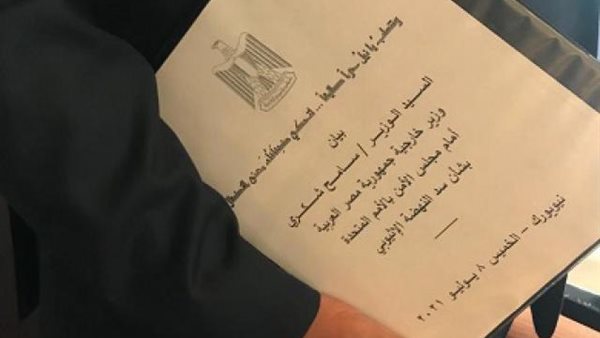 وتنساب يا نيل حراً طليقاً ... لتحكي ضفافك معنى النضال
بيان
السيد الوزير / سامح شكري
وزير خارجية جمهورية مصر العربية
أمام مجلس الأمن بالأمم المتحدة
بشأن سد النهضة الإثيوبي
نيويورك - الخميس ٨ يوليو ٢٠٢١